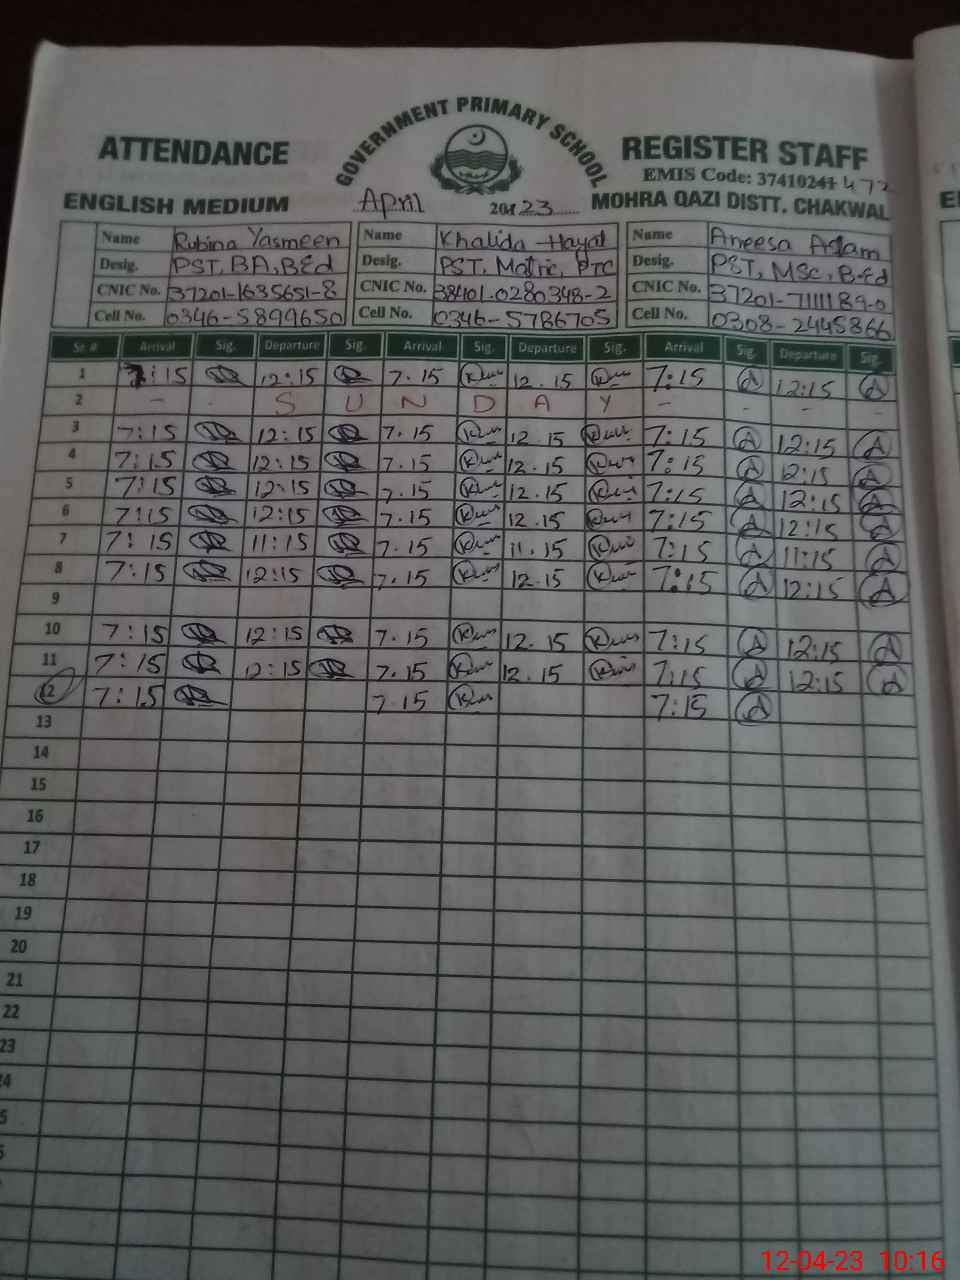 GOVERNMENT PRIMARY SCHOOL
ATTENDANCE REGISTER STAFF
EMIS Code: 37410241 472
ENGLISH MEDIUM April 201 23 MOHRA QAZI DISTT. CHAKWAL
Name Rubina Yasmeen Name Khalida Hayat Name Aneesa Aslam
Desig. PST, BA, B.Ed Desig. PST, Matric, PTC Desig. PST, MSc, B.Ed
CNIC No. 37201-1635651-8 CNIC No. 38401-0280348-2 CNIC No. 37201-7111189-0
Cell No. 0346-5899650 Cell No. 0346-5786705 Cell No. 0308-2445866
Sr # Arrival Sig. Departure Sig. Arrival Sig. Departure Sig. Arrival Sig. Departure Sig.
1 7:15 12:15 7.15 12.15 7:15 A 12:15 A
2 - - S U N D A Y - - - -
3 7:15 12:15 7.15 12.15 7:15 A 12:15 A
4 7:15 12:15 7.15 12.15 7:15 A 12:15 A
5 7:15 12:15 7.15 12.15 7:15 A 12:15 A
6 7:15 12:15 7.15 12.15 7:15 A 12:15 A
7 7:15 11:15 7.15 11.15 7:15 A 11:15 A
8 7:15 12:15 7.15 12.15 7:15 A 12:15 A
9
10 7:15 12:15 7.15 12.15 7:15 A 12:15 A
11 7:15 12:15 7.15 12.15 7:15 A 12:15 A
12 7:15 7.15 7:15 A
13
14
15
16
17
18
19
20
21
22
23
24
12-04-23 10:16